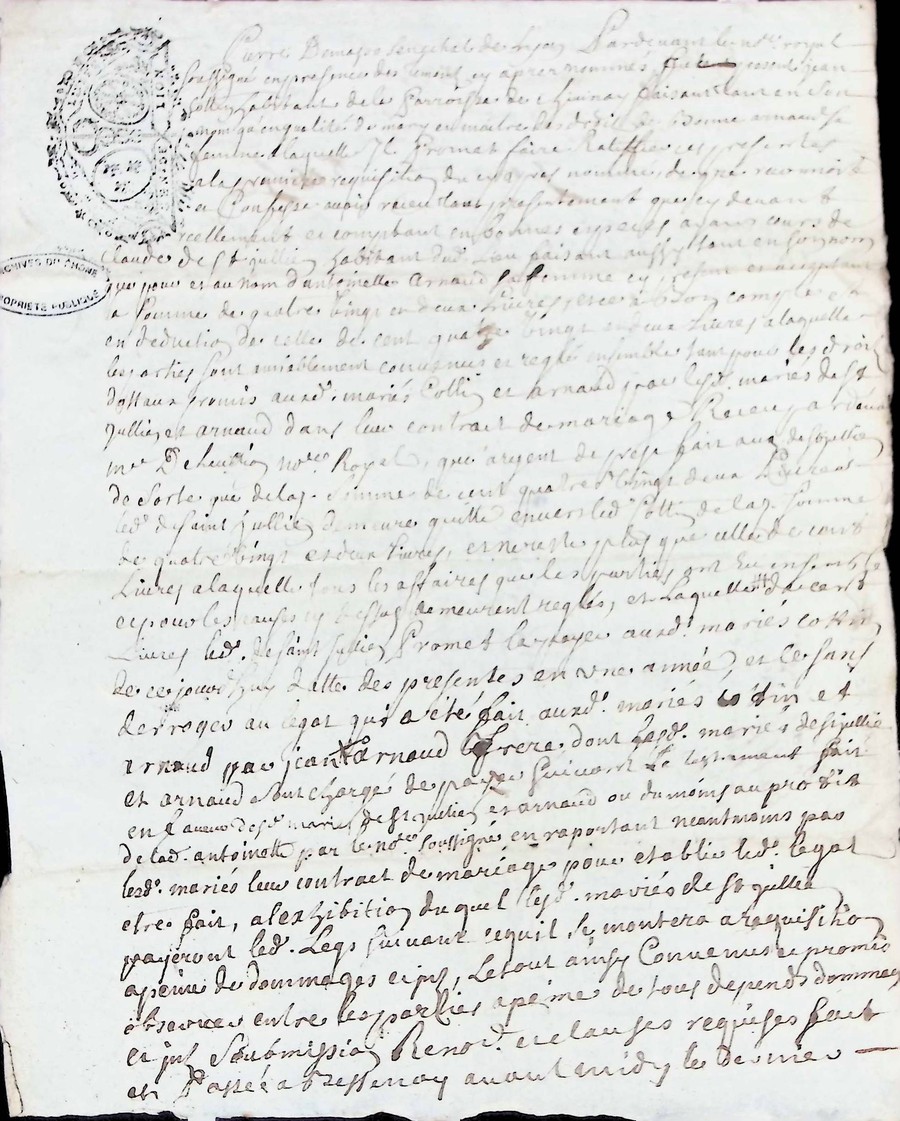 Pardevant le no.re royal
soussigné en presence des temoins cy apres nommés, present jean
Cottin habitant de la Parroisse de faisant tant en son
nom qu'en qualité de mary et maitre des droits de arnaud sa
femme a laquelle Il Promet faire Ratiffier ces presentes
a la premiere requisition du cy apres nommé de gré reconnoit
et Confesse avoir receu tant presentement que cy devant
reellement et comptant en bonnes especes ayant cours de
Claude de St Jullien habitant dud. Lieu faisant aussy tant en son nom
que pour et au nom d'antoinette Arnaud sa femme cy present et acceptant
la somme de quatre vingt et deux Livres, et ce a bon compte et
en deduction de celle de cent quatre vingt et deux Livres a laquelle
les parties sont amiablement convenues et reglé ensemble tant pour les droits
dottaux promis auxd. mariés Cottin et arnaud par lesd. mariés de St
Jullien et arnaud dans leur contract de mariage Receu pardevant
me no.re Royal, que argent de prest fait aud. de St Jullien
de sorte que de lad. somme de cent quatre vingt deux Livres
led. de Saint Jullien demeure quitte envers led. Cottin de lad. somme
de quatre vingt et deux livres, et ne reste plus que celle de cent
Livres a laquelle tous les affaires que les parties ont eu ensemble
et pour les causes cy dessus demeurent reglés, et laquelle de cent
Livres led. de Saint Jullien Promet la payer auxd. mariés cottin
de ce jourdhuy datte des presentes en une année, et ce sans
deroger au legat qui a eté fait auxd. mariés cottin et
arnaud par jean Arnaud le frere dont lesd. mariés de St Jullien
et arnaud sont chargé de payer suivant Le testament fait
en faveur desd. mariés de St Jullien et arnaud ou du moins au profit
de lad. antoinette par le no.re soussigné en raportant neantmoins par
lesd. mariés leur contract de mariage pour etablir led. legat
etre fait, a l'exhibition duquel lesd. mariés de St Jullien
payeront led. Legs suivant ce quil se montera a requisition
a peine de dommages et int. Le tout ainsy Convenus et promis
observer entre les parties a peine de tous depends dommages
et int. Soubmission Reno.on et clauses requises fait
et Passé a Bessenay avant midy le dernier
ARCHIVES DU RHONE
PROPRIÉTÉ PUBLIQUE